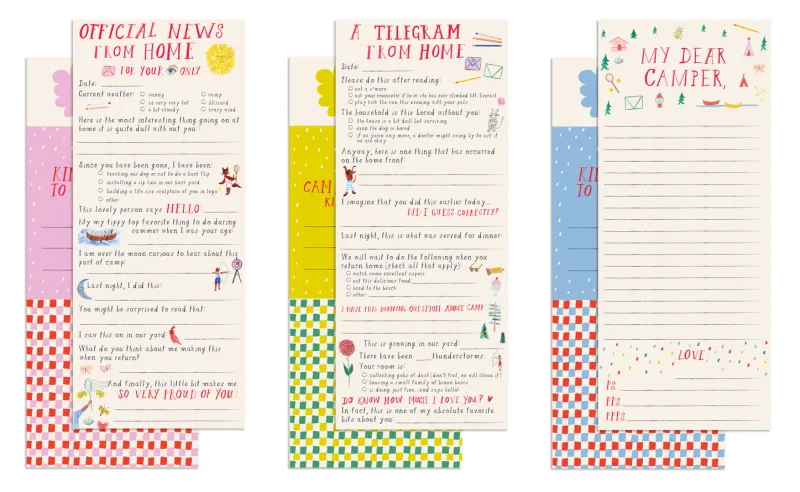 OFFICIAL NEWS
FROM HOME
FOR YOUR ONLY
Date:
Current weather:
sunny
rainy
so very very hot
blizzard
a bit cloudy
crazy wind
Here is the most interesting thing going on at
home it is quite dull with out you :
Since you have been gone, I have been:
teaching our dog or cat to do a back flip
installing a zip line in our back yard
building a life size sculpture of you in legos
other
This lovely person says HELLO:
My my tippy top favorite thing to do during
summer when I was your age:
I am over the moon curious to hear about this
part of camp:
Last night, I did this:
You might be surprised to read that:
I saw this on in our yard:
What do you think about me making this
when you return?
And finally, this little bit makes me
SO VERY PROUD OF YOU:
KI
TO
A TELEGRAM
FROM HOME
Date:
Please do this after reading:
eat a s'more
ask your counselor if he or she has ever climbed Mt. Everest
play kick the can this evening with your pals
The household is this bored without you:
the house is a bit dull but surviving
even the dog is bored
if we yawn any more, a doctor might swing by to ask if
we are okay
Anyway, here is one thing that has occurred
on the home front:
I imagine that you did this earlier today...
DID I GUESS CORRECTLY?
Last night, this is what was served for dinner:
We will wait to do the following when you
return home (check all that apply):
watch some excellent capers
eat this delicious food
head to the beach
other:
I HAVE THIS BURNING QUESTION ABOUT CAMP
This is growing in our yard:
There have been thunderstorms.
Your room is:
collecting gobs of dust (don't fret, we will clean it)
housing a small family of brown bears
is doing just fine...and says hello!
DO KNOW HOW MUCH I LOVE YOU?
In fact, this is one of my absolute favorite
bits about you:
CAM
MY DEAR
CAMPER,
LOVE,
PS
PPS
PPPS
KI
TO